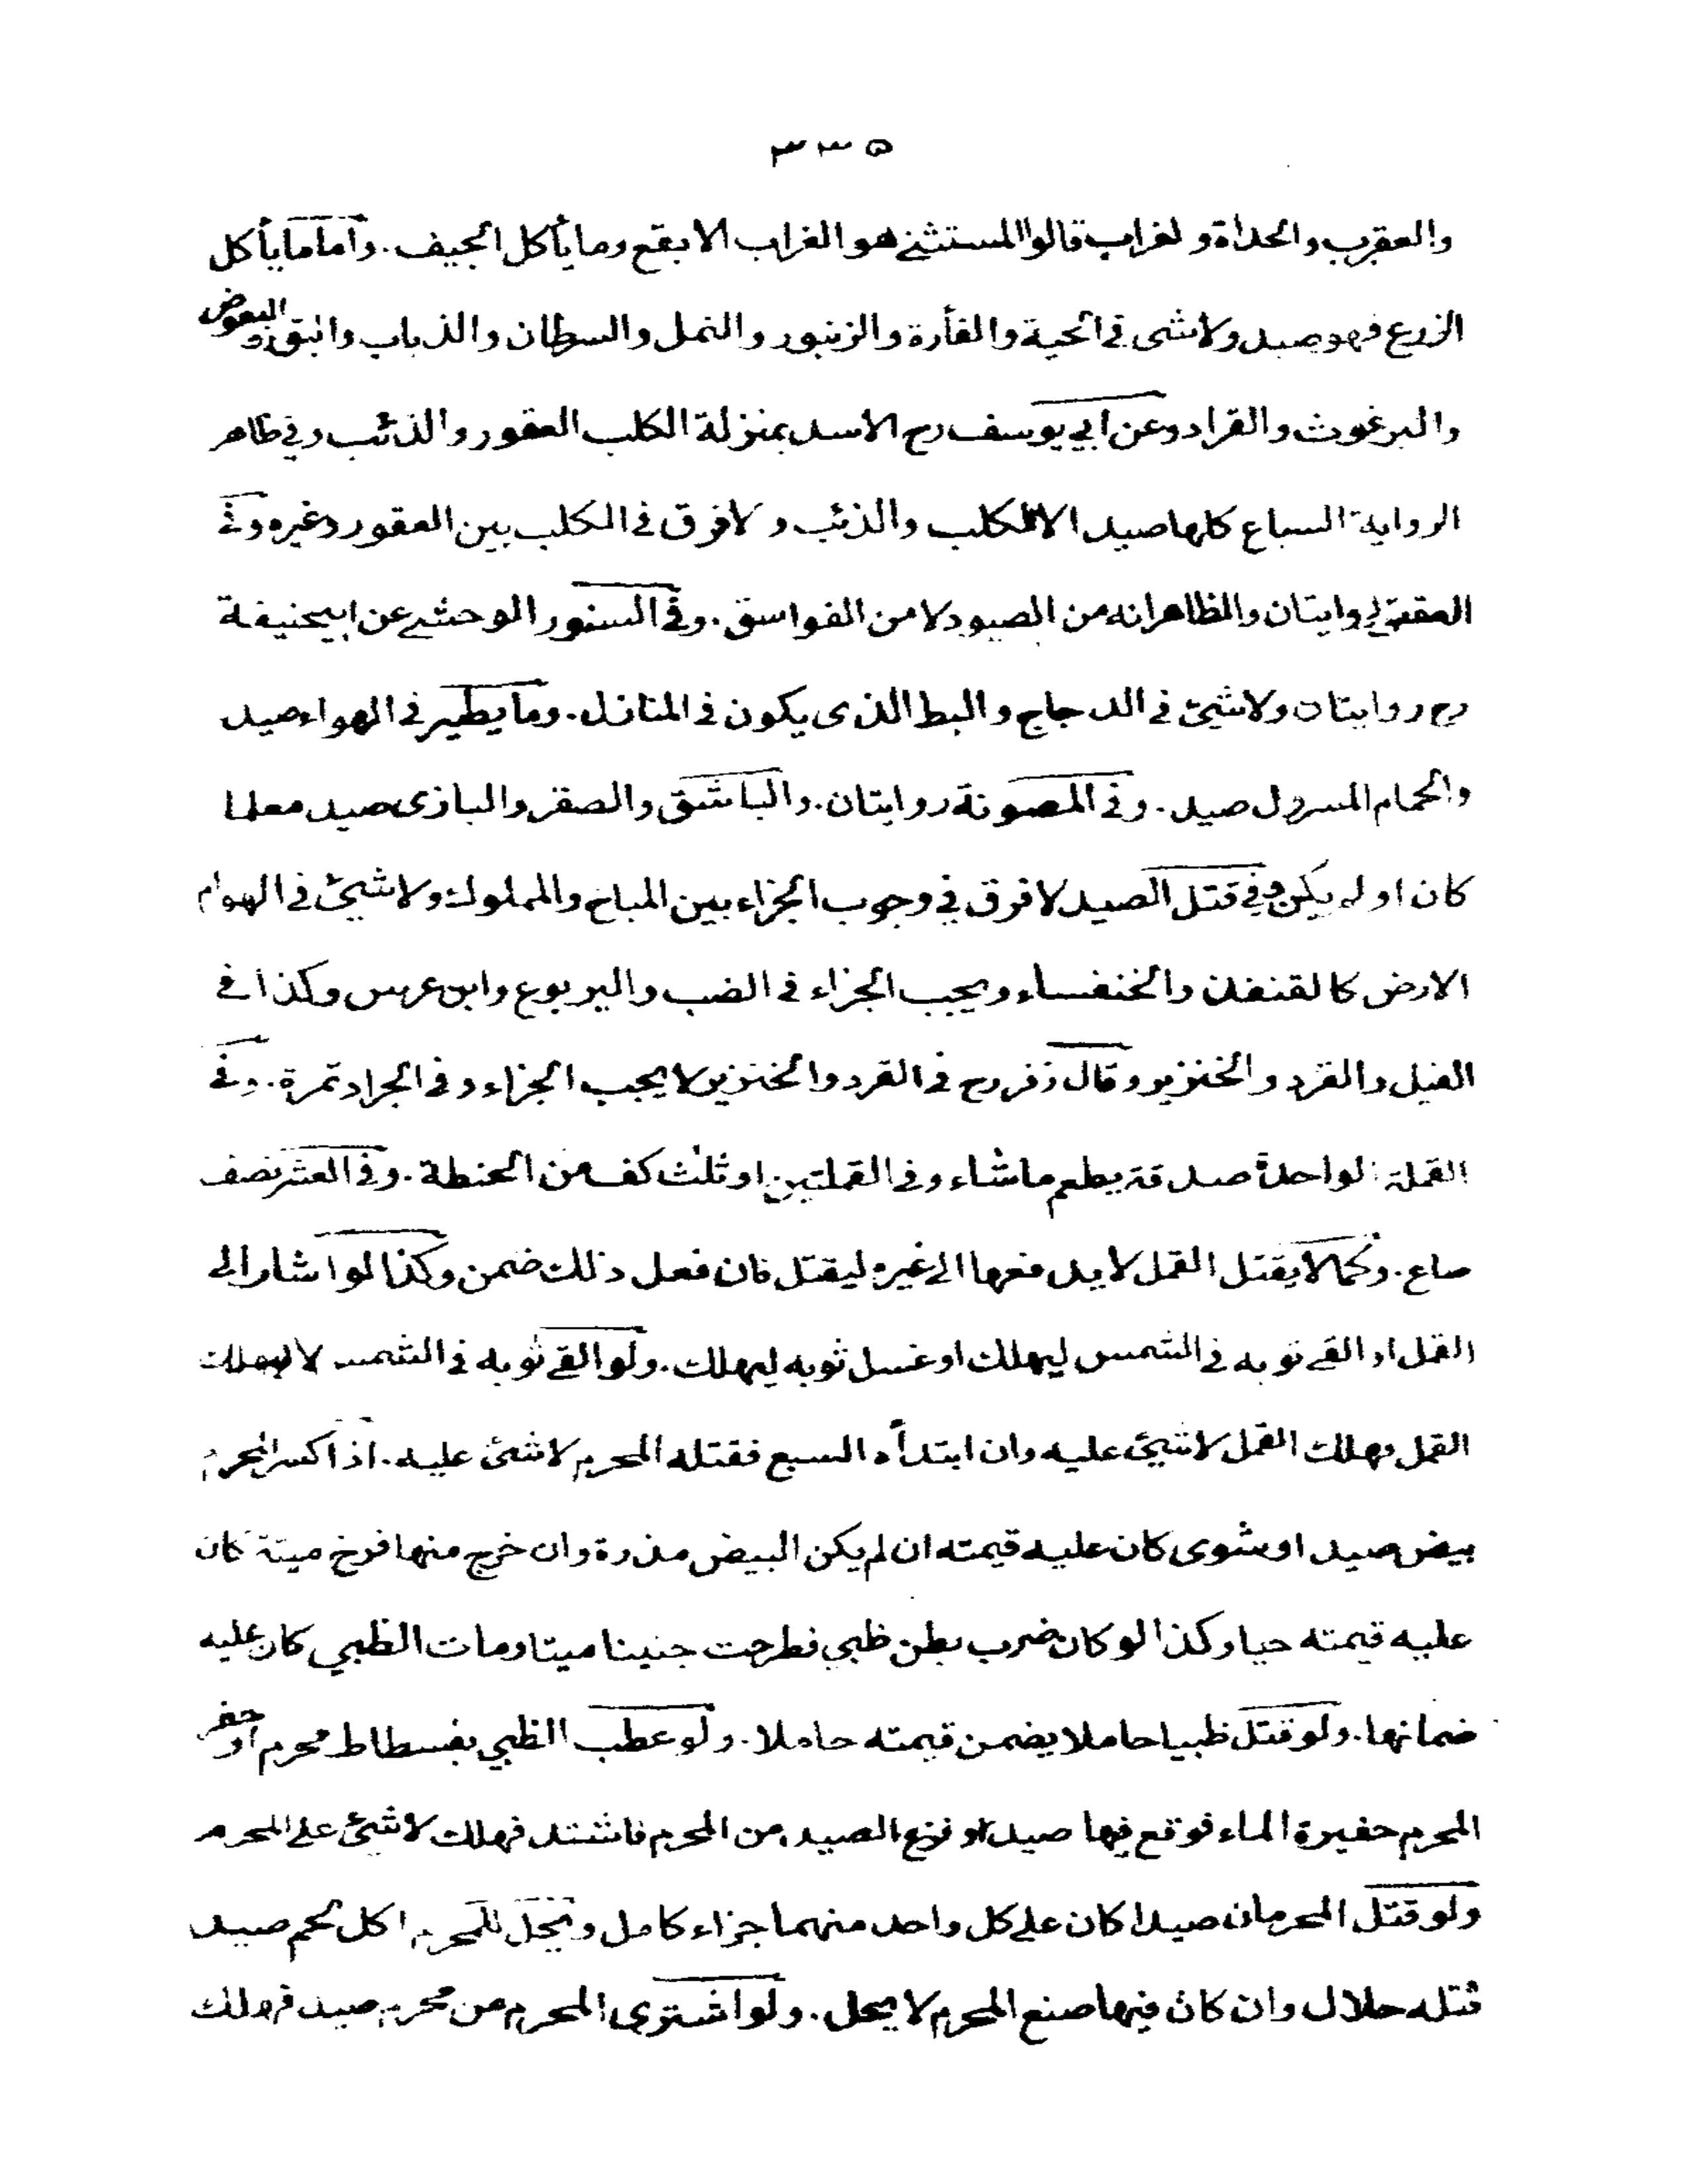 ٣٣٥
والعقرب والحدأة ولغراب قالوا المستثنى هو الغراب الابقع وما يأكل الجيف. واما ما يأكل
الزرع فهو صيد ولاشى فى الحية والفأرة والزنبور والنمل والسرطان والذباب والبق والبعوض
والبرغوث والقراد وعن ابي يوسف رح الاسد بمنزلة الكلب العقور والذئب وفى ظاهر
الرواية السباع كلها صيد الا الكلب والذئب ولا فرق فى الكلب بين العقور وغيره وفى
العقعق روايتان والظاهر انه من الصيود لا من الفواسق. وفى السنور الوحشى عن ابيحنيفة
رح روايتان ولاشيئ فى الدجاج والبط الذى يكون فى المنازل. وما يطير فى الهواء صيد
والحمام المسرول صيد. وفى المصونة روايتان. والباشق والصقر والبازى صيد معلما
كان او لم يكن وفى قتل الصيد لا فرق فى وجوب الجزاء بين المباح والمملوك ولاشيئ فى الهوام
الارض كالقنفذ والخنفساء ويجب الجزاء فى الضب واليربوع وابن عرس وكذا فى
الفيل والقرد والخنزير وقال زفر رح فى القرد والخنزير لا يجب الجزاء وفى الجراد تمرة. وفى
القملة الواحدة صدقة يطعم ماشاء وفى القملتين او ثلث كف من الحنطة. وفى العشر نصف
صاع. وكما لا يقتل القمل لا يدفعها الى غيره ليقتل فان فعل ذلك ضمن وكذا لو اشار الى
القمل او القى ثوبه فى الشمس ليهلك او غسل ثوبه ليهلك. ولو القى ثوبه فى الشمس لا ليهلك
القمل فهلك القمل لاشيئ عليه وان ابتدأه السبع فقتله المحرم لاشئ عليه. اذا كسر المحرم
بيض صيد او شوى كان عليه قيمته ان لم يكن البيض مذرة وان خرج منها فرخ ميتة كان
عليه قيمته حيا وكذا لو كان ضرب بطن ظبي فطرحت جنينا ميتا ومات الظبي كان عليه
ضمانها. ولو قتل ظبيا حاملا يضمن قيمته حاملا. ولو عطب الظبي بفسطاط محرم او حفر
المحرم حفيرة الماء فوقع فيها صيد او فزع الصيد من المحرم فاشتد فهلك لاشئ على المحرم
ولو قتل المحرمان صيدا كان على كل واحد منهما جزاء كامل ويحل للمحرم اكل لحم صيد
قتله حلال وان كان فيها صنع المحرم لا يحل. ولو اشترى المحرم من محرم صيد فهلك